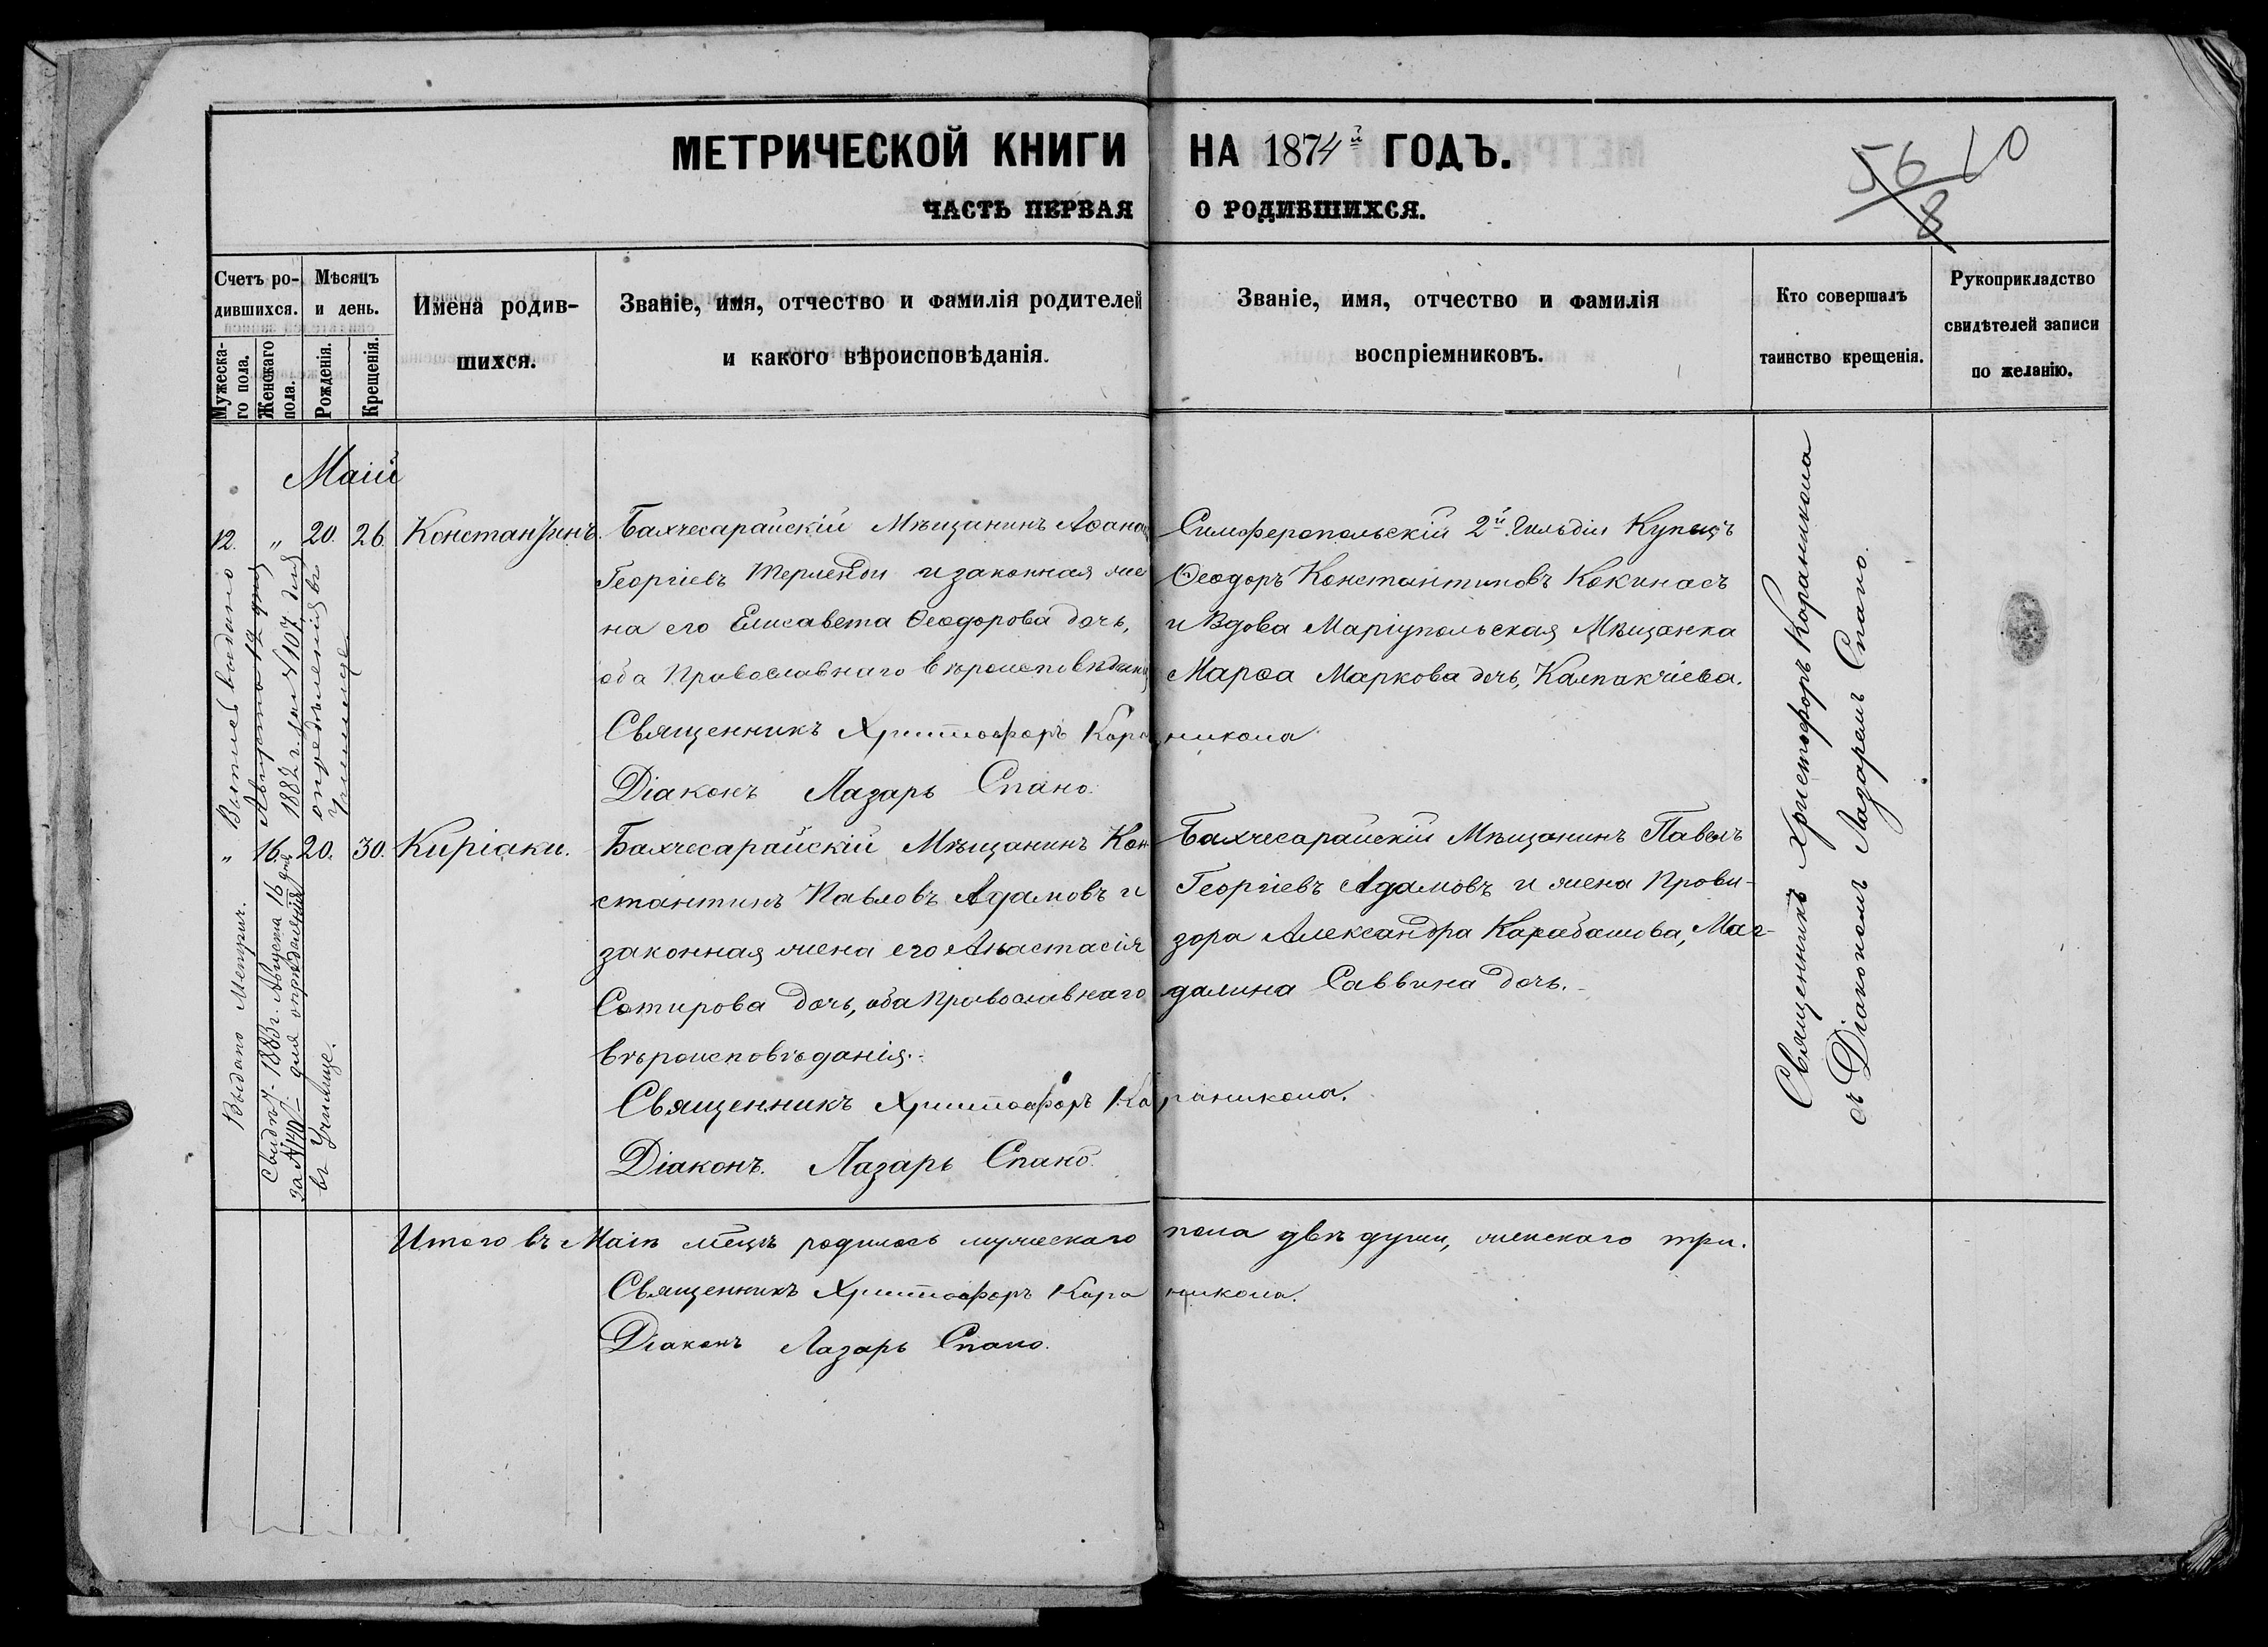 МЕТРИЧЕСКОЙ КНИГИ НА 1874й ГОДЪ.
ЧАСТЬ ПЕРВАЯ О РОДИВШИХСЯ.
56 10
8
Счетъ ро-
дившихся.
Мужеска-
го пола.
Женскаго
пола.
Мѣсяцъ
и день.
Рожденія.
Крещенія.
Имена родив-
шихся.
Званіе, имя, отчество и фамилія родителей
и какого вѣроисповѣданія.
Званіе, имя, отчество и фамилія
воспріемниковъ.
Кто совершалъ
таинство крещенія.
Рукоприкладство
свидѣтелей записи
по желанію.
Маій
12. " 20. 26. Константинъ.
Бахчесарайскій Мѣщанинъ Аѳана
Георгіевъ Терленди и законная же
на его Елисавета Ѳеодорова дочь,
оба Православнаго вѣроисповѣданія
Симферопольскій 2й Гильдіи Купецъ
Ѳеодоръ Константиновъ Кокинасъ
и Вдова Маріупольская Мѣщанка
Марѳа Маркова дочь, Калпакчіева.
Священникъ Христофоръ Караникола
Діаконъ Лазарь Спано.
Выпись выдано
Августа 12 дня
1882 г. за № 107 для
опредѣленія въ
Училище
" 16. 20. 30. Киріаки.
Бахчесарайскій Мѣщанинъ Кон
стантинъ Павловъ Адамовъ и
законная жена его Анастасія
Сотирова дочь, оба Православнаго
вѣроисповѣданія.
Бахчесарайскій Мѣщанинъ Павелъ
Георгіевъ Адамовъ и жена Прови-
зора Александра Карабашова, Маг-
далина Саввина дочь.
Священникъ Христофоръ Караникола.
Діаконъ. Лазарь Спано.
Выдано Метрич.
Свидѣт. 1883 г. Августа 16 дня
за № для опредѣленія
въ Училище.
Священникъ Христофоръ Караникола
съ Діакономъ Лазаремъ Спано.
Итого въ Маіѣ мѣцѣ родилось мужескаго пола двѣ души, женскаго три.
Священникъ Христофоръ Караникола.
Діаконъ Лазарь Спано.